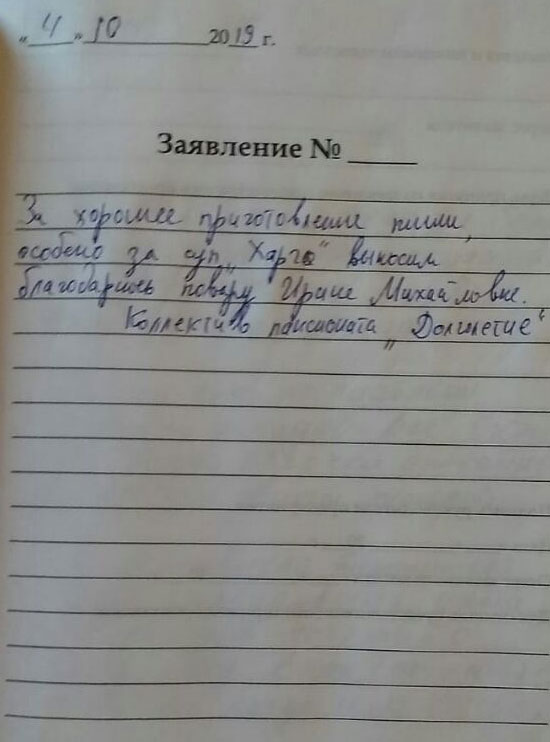 „4" 10 2019 г.
Заявление № ____
За хорошее приготовление пищи,
особено за суп „Харчо" выносим
благодарность повару Ирине Михайловне.
Коллектив пансионата „Долголетие"